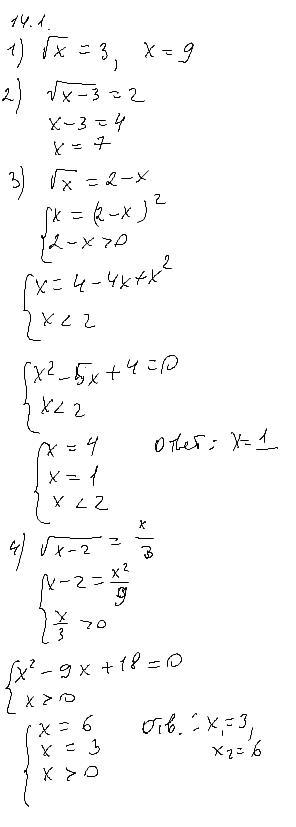 14.1.
1) √x = 3, x = 9
2) √x-3 = 2
x-3 = 4
x = 7
3) √x = 2-x
x = (2-x)²
2-x > 0
x = 4-4x+x²
x < 2
x² - 5x + 4 = 0
x < 2
x = 4 Ответ: x = 1
x = 1
x < 2
4) √x-2 = x/3
x-2 = x²/9
x/3 > 0
x² - 9x + 18 = 0
x > 0
x = 6 Отв.: x₁=3,
x = 3 x₂=6
x > 0